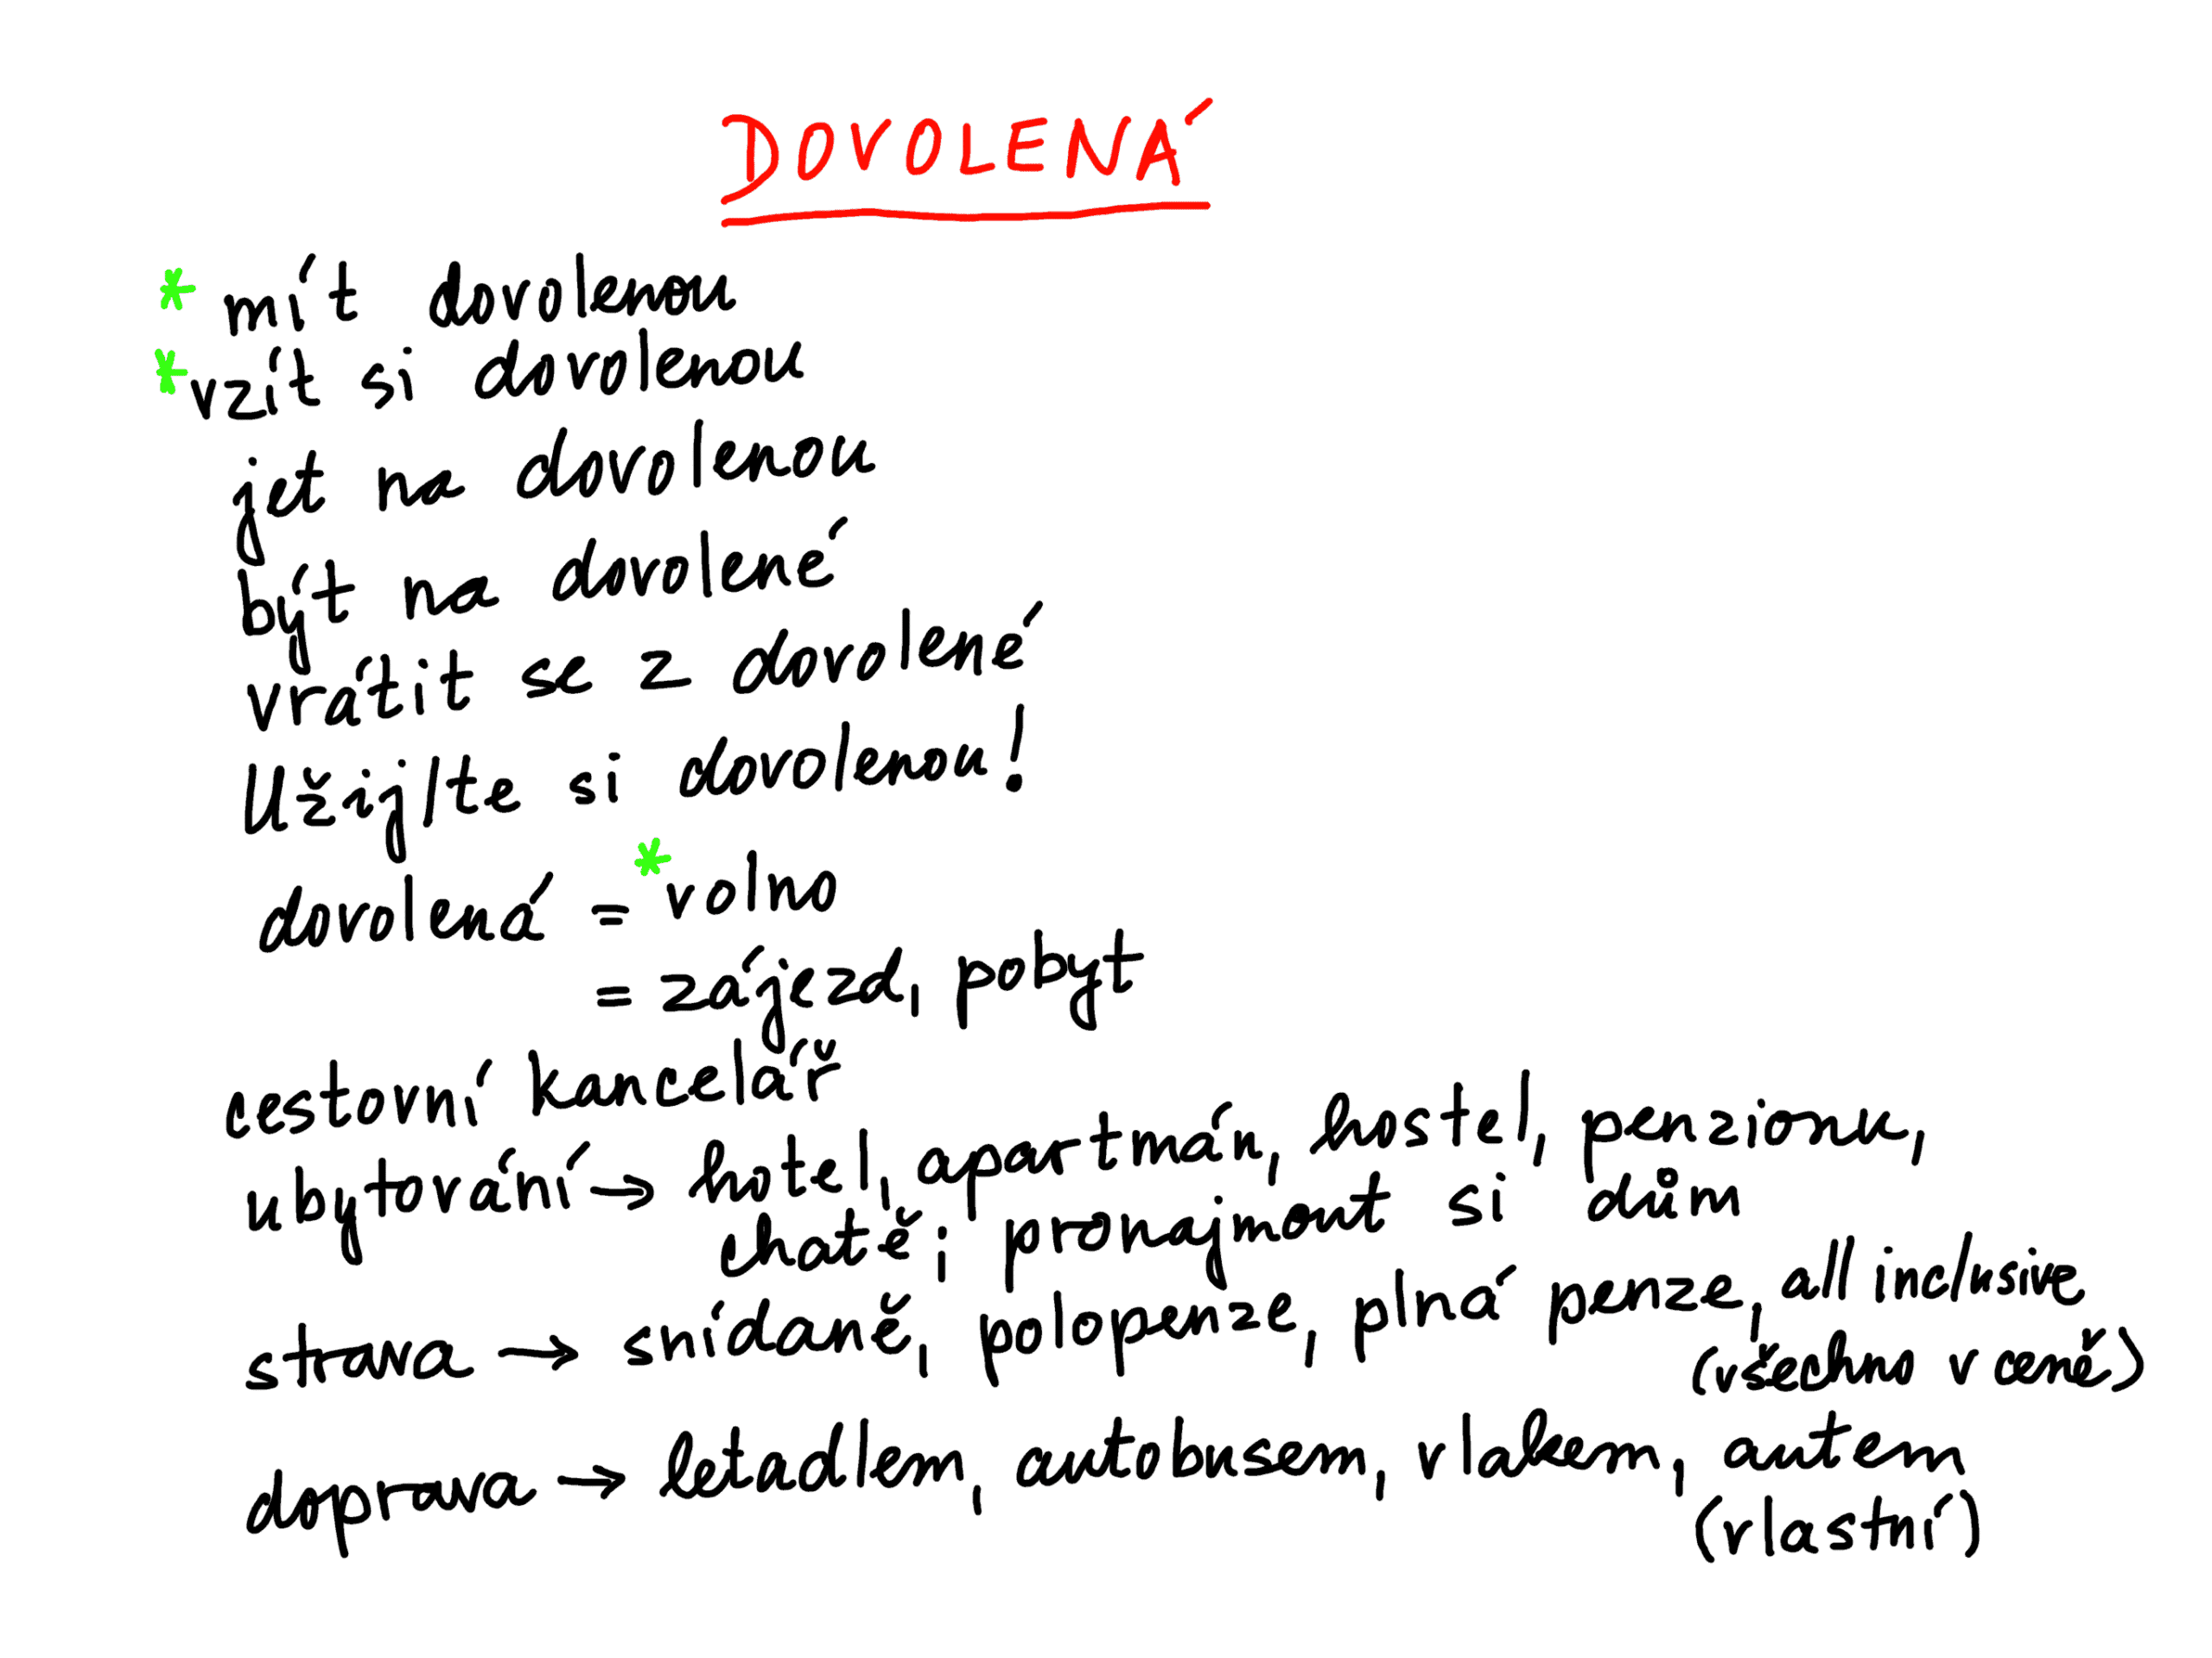 DOVOLENÁ
* mít dovolenou
* vzít si dovolenou
jet na dovolenou
být na dovolené
vrátit se z dovolené
Užij/te si dovolenou!
dovolená = *volno
= zájezd, pobyt
cestovní kancelář
ubytování → hotel, apartmán, hostel, penzionu,
chatě; pronajmout si dům
strava → snídaně, polopenze, plná penze, all inclusive
(všechno v ceně)
doprava → letadlem, autobusem, vlakem, autem
(vlastní)